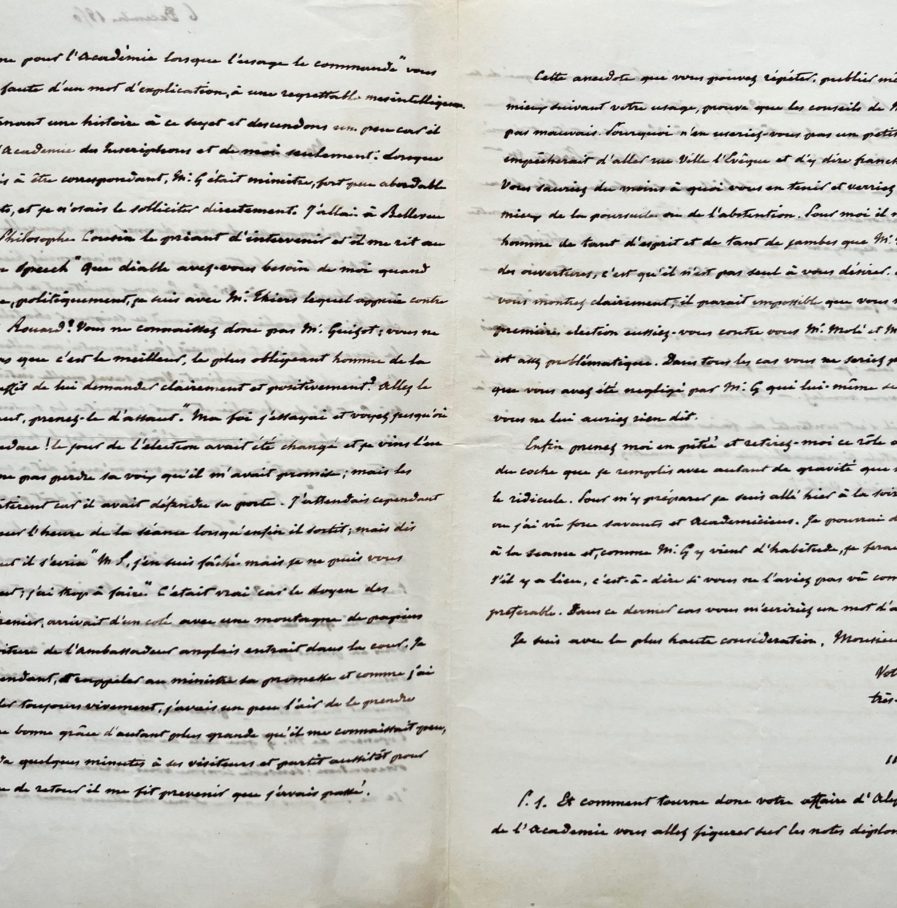 pour l'Académie lorsque l'usage le commande" vous
faute d'un mot d'explication, à une regrettable mésintelligence.
une histoire à ce sujet et descendons un peu car il
l'Academie des Inscriptions et de moi seulement. Lorsque
à être correspondant, Mr. G était ministre, fort peu abordable
et je n'osais le solliciter directement. J'allai à Bellevue
Philosophe Cousin le priant d'intervenir et il me rit au
Speech" Que diable avez-vous besoin de moi quand
politiquement, je suis avec Mr. Thiers lequel appuie contre
Rouard? Vous ne connaissez donc pas Mr. Guizot; vous ne
que c'est le meilleur, le plus obligeant homme de la
suffit de lui demander clairement et positivement? Allez le
prenez-le d'assaut." Ma foi j'essayai et voyez jusqu'où
le jour de l'élection avait été changé et je vins l'en
ne pas perdre sa voix qu'il m'avait promise; mais les
car il avait défendu sa porte. J'attendais cependant
l'heure de la séance lorsqu'enfin il sortit; mais dès
il s'écria "M S, j'en suis fâché mais je ne puis vous
j'ai trop à faire". C'était vrai car le doyen des
arrivait d'un coté avec une montagne de papiers
voiture de l'Ambassadeur anglais entrait dans la cour. Je
rappeler au ministre sa promesse et comme j'ai
toujours vivement, j'avais un peu l'air de le gronder
bonne grâce d'autant plus grande qu'il me connaissait peu,
quelques minutes à ses visiteurs et partit aussitôt pour
de retour il me fit prevenir que j'avais passé.
Cette anecdote que vous pouvez répéter, publier
mieux suivant votre usage, prouve que les conseils de
pas mauvais. Pourquoi n'en useriez-vous pas un petit
empêcherait d'aller rue Ville l'Evêque et d'y dire
Vous sauriez du moins à quoi vous en tenir et verriez
mieux de la poursuite ou de l'abstention. Pour moi il
homme de tant d'esprit et de tant de jambes que Mr.
des ouvertures, c'est qu'il n'est pas seul à vous désirer.
vous montrez clairement, il parait impossible que vous
première election eussiez-vous contre vous Mr. Molé et
est assez problématique. Dans tous les cas vous ne seriez
que vous avez été negligé par Mr. G qui lui-même
vous ne lui auriez rien dit.
Enfin prenez moi en pitié et retirez-moi ce rôle
du coche que je remplis avec autant de gravité que
le ridicule. Pour m'y préparer je suis allé hier à la
ou j'ai vû force savants et Academiciens. Je pourrai
à la seance et, comme Mr. G y vient d'habitude, je
s'il y a lieu, c'est-à-dire si vous ne l'aviez pas vû
préferable. Dans ce dernier cas vous m'ecririez un mot
Je suis avec la plus haute consideration, Monsieur
très-
P. S. Et comment tourne donc votre affaire
de l'Academie vous allez figurer sur les notes